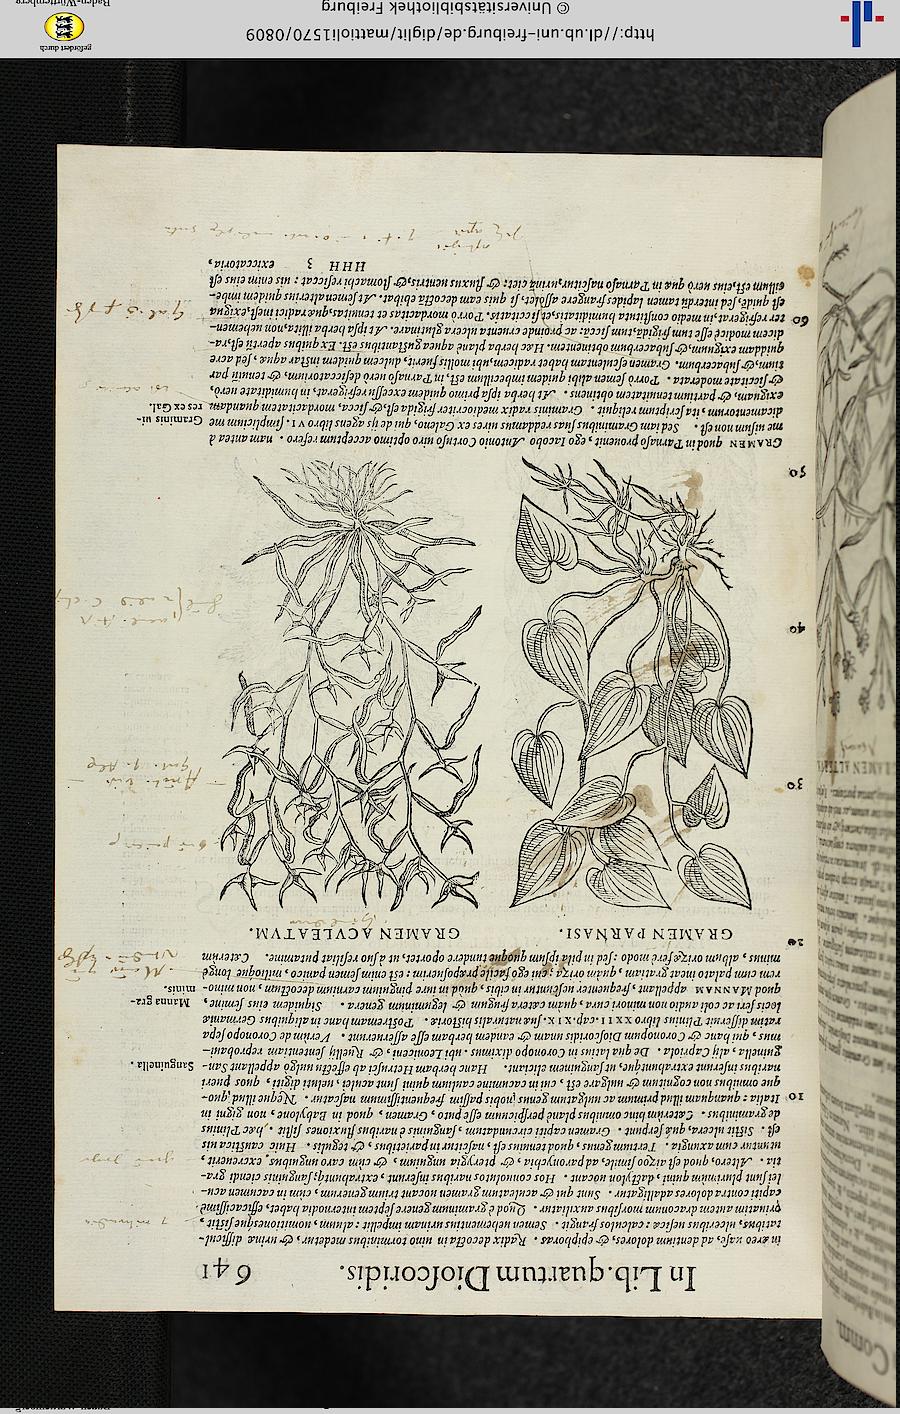 In Lib. quartum Dioscoridis. 641
in æreo uase, ad dentium dolores, & epiphoras. Radix decocta in uino torminibus medetur, & urinæ difficul-
tatibus, ulceribus uesicæ: calculos frangit. Semen uehementius urinam impellit: aluum, uomitionesque sistit,
priuatim autem draconum morsibus auxiliatur. Quod è graminum genere septem internodia habet, efficacissimè
capiti contra dolores adalligatur. Sunt qui & aculeatum gramen uocant trium generum, cùm in cacumine acu-
lei sunt plurimum quini, dactylon uocant. Hos conuolutos naribus inserunt, extrahuntq; sanguinis ciendi gra-
tia. Altero, quod est aizoo simile, ad paronychia, & pterygia unguium, & cùm caro unguibus excreuerit,
utuntur cum axungia. Tertium genus, quod tenuius est, nascitur in parietibus, & tegulis. Huic caustica uis
est. Sistit ulcera, quæ serpunt. Gramen capiti circundatum, sanguinis è naribus fluxiones sistit. hæc Plinius
de graminibus. Cæterùm hinc omnibus planè perspicuum esse puto, Gramen, quod in Babylone, non gigni in
Italia: quanquam illud primum ac uulgatum genus nobis passim frequentissimum nascatur. Neque illud, quo-
que omnibus non cognitum & uulgare est, cui in cacumine caulium quini sunt aculei, ueluti digiti, quos pueri
naribus inserunt extrahuntque, ut sanguinem eliciant. Hanc herbam Hetrusci ab effectu uulgo appellant San-
guinella, alij Capriola. De qua latius in Coronopo diximus, ubi Leoniceni, & Ruellij sententiam reprobaui-
mus, qui hanc & Coronopum Dioscoridis unam & eandem herbam esse asseruerunt. Verùm de Coronopo sepa
ratim disseruit Plinius libro XXII. cap. XIX. suæ naturalis historiæ. Postremam hanc in aliquibus Germaniæ
locis seri ac coli audio non minori cura, quàm cætera frugum & leguminum genera. Siquidem eius semine,
quod MANNAM appellant, frequenter uescuntur in cibis, quòd in iure pinguium carnium decoctum, non mino-
rem cum palato ineat gratiam, quàm oryza: cui ego facilè præposuerim: est enim semen panico, milioque longè
minus, album oryzæ ferè modo: sed in pila ipsum quoque tundere oportet, ut à suo resiliat putamine. Cæterùm
Sanguinella.
Manna gra-
minis.
10
20
30
40
50
60
GRAMEN PARNASI.
GRAMEN ACVLEATVM.
GRAMEN quod in Parnaso prouenit, ego Iacobo Antonio Cortuso uiro optimo acceptum refero. nam antea à
me uisum non est. Sed iam Graminibus suas reddamus uires ex Galeno, qui de ijs agens libro VI. simplicium me
dicamentorum, ita scriptum reliquit. Graminis radix mediocriter frigida est, & sicca, mordacitatem quandam
exiguam, & partium tenuitatem obtinens. At herba ipsa primo quidem excessu refrigerat, in humiditate uerò,
& siccitate moderata. Porrò semen alibi quidem imbecillum est, in Parnaso uerò desiccatorium, & tenuiū par
tium, & subacerbum. Gramen esculentam habet radicem, ubi mollis fuerit, dulcem quidem instar aquæ, sed acre
quiddam exiguum, & subacerbum obtinentem. Hæc herba planè aquea gustantibus est. Ex quibus apertū est, ra-
dicem modicè esse tum frigidā, tum siccā: ac proinde cruenta ulcera glutinare. At ipsa herba illita, non uehemen-
ter refrigerat, in medio constituta humiditatis, et siccitatis. Porrò mordacitas et tenuitas, quæ radici inest, exigua
est quidē, sed interdū tamen lapides frangere assolet, si quis eam decoctā ebibat. At semen alterius quidem imbe-
cillum est, eius uerò quæ in Parnaso nascitur, urinā ciet: & fluxus uentris, & stomachi resiccat: uis enim eius est
Graminis ui-
res ex Gal.
HHH 3 exiccatoria,
http://dl.ub.uni-freiburg.de/diglit/mattioli1570/0809
© Universitätsbibliothek Freiburg
gefördert durch
Baden-Württemberg